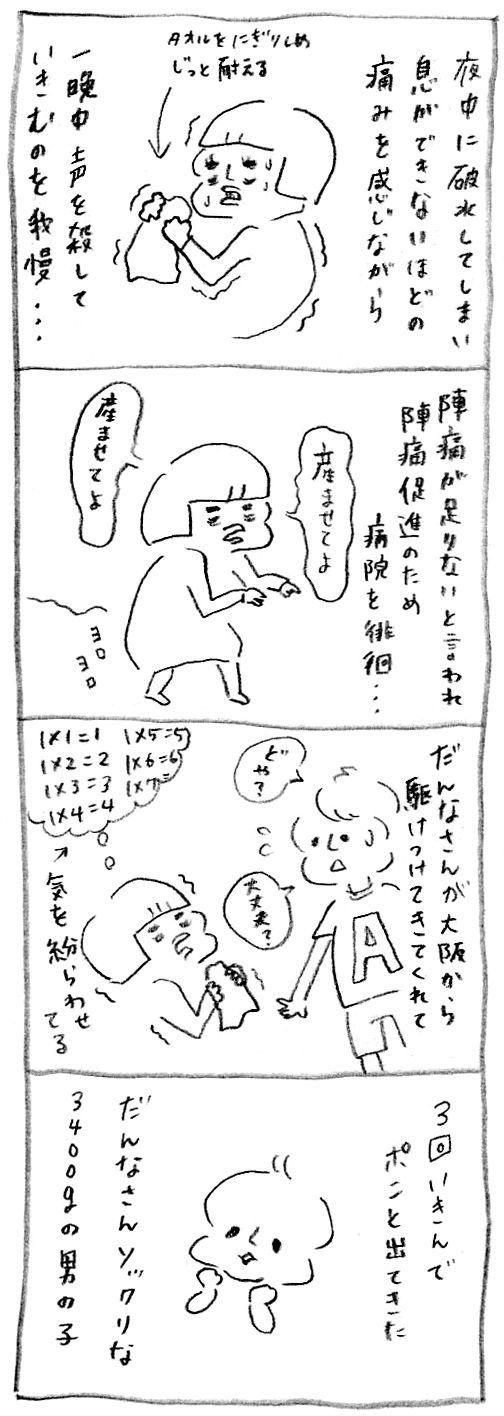 夜中に破水してしまい
息ができないほどの
痛みを感じながら
タオルをにぎりしめ
じっと耐える
一晩中声を殺して
いきむのを我慢...
陣痛が足りないと言われ
陣痛促進のため
病院を徘徊...
産ませてよ
産ませてよ
ヨロ
ヨロ
だんなさんが大阪から
駆けつけてきてくれて
どや?
大丈夫?
A
1×1=1
1×2=2
1×3=3
1×4=4
1×5=5
1×6=6
1×7=
気を紛らわせ
てる
3回いきんで
ポンと出てきた
だんなさんソックリな
3400gの男の子